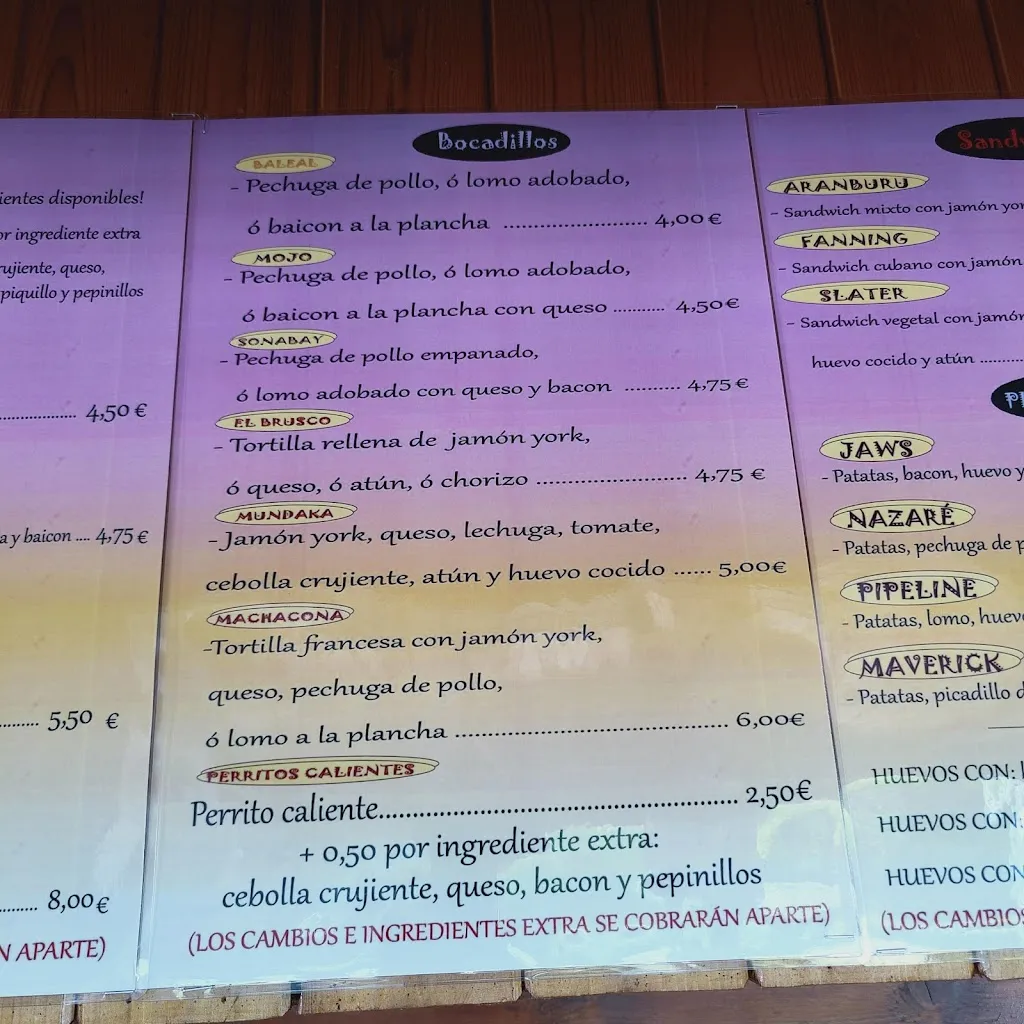 ientes disponibles!
or ingrediente extra
rujiente, queso,
piquillo y pepinillos
............... 4,50 €
a y baicon .... 4,75 €
......... 5,50 €
......... 8,00€
N APARTE)
Bocadillos
BALEAL
- Pechuga de pollo, ó lomo adobado,
ó baicon a la plancha ...................... 4,00 €
MOJO
- Pechuga de pollo, ó lomo adobado,
ó baicon a la plancha con queso .......... 4,50€
SONABAY
- Pechuga de pollo empanado,
ó lomo adobado con queso y bacon .......... 4,75 €
EL BRUSCO
- Tortilla rellena de jamón york,
ó queso, ó atún, ó chorizo ....................... 4,75 €
MUNDAKA
- Jamón york, queso, lechuga, tomate,
cebolla crujiente, atún y huevo cocido ...... 5,00€
MACHACONA
-Tortilla francesa con jamón york,
queso, pechuga de pollo,
ó lomo a la plancha ...................................... 6,00€
PERRITOS CALIENTES
Perrito caliente................................................ 2,50€
+ 0,50 por ingrediente extra:
cebolla crujiente, queso, bacon y pepinillos
(LOS CAMBIOS E INGREDIENTES EXTRA SE COBRARÁN APARTE)
Sand
ARANBURU
- Sandwich mixto con jamón yor
FANNING
- Sandwich cubano con jamón
SLATER
- Sandwich vegetal con jamón
huevo cocido y atún ........
JAWS
- Patatas, bacon, huevo y
NAZARÉ
- Patatas, pechuga de p
PIPELINE
- Patatas, lomo, huev
MAVERICK
- Patatas, picadillo d
HUEVOS CON:
HUEVOS CON:
HUEVOS CON
(LOS CAMBIOS